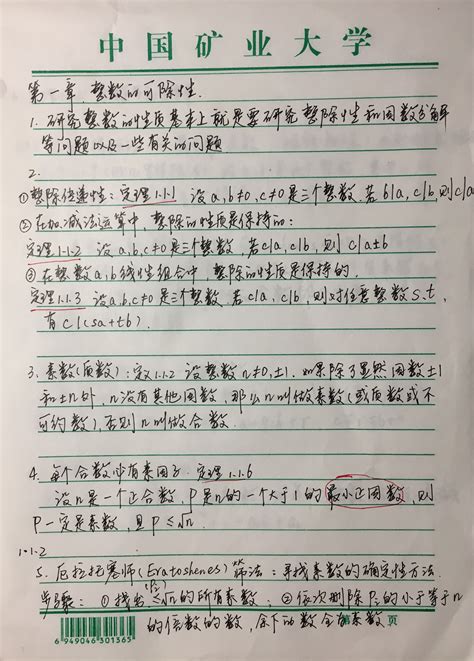 中国矿业大学
第一章 整数的可除性.
1. 研究整数的性质基本上就是要研究整除性和因数分解
等问题以及一些有关的问题
2.
①整除传递性:定理1.1.1 设a,b≠0,c≠0是三个整数.若b|a,c|b,则c|a
②在加.减法运算中,整除的性质是保持的:
定理1.1.2 设a,b,c≠0是三个整数,若c|a,c|b,则c|a±b
③在整数a,b线性组合中,整除的性质是保持的.
定理1.1.3 设a,b,c≠0是三个整数.若c|a,c|b,则对任意整数s.t,
有c|(sa+tb).
3. 素数(质数):定义1.1.2 设整数n≠0,±1.如果除了显然因数±1
和±n外,n没有其他因数,那么n叫做素数(或质数或不
可约数),否则n叫做合数.
4. 每个合数必有素因子 定理1.1.6
设n是一个正合数,P是n的一个大于1的最小正因数,则
P一定是素数,且P≤√n.
1.1.2
5. 厄拉托塞师(Eratoshenes)筛法:寻找素数的确定性方法.
步骤: ①找出≤√n的所有素数; ②依次删除Pi的小于等于n
的倍数的数,余下的数全为素数 页
6949046301365